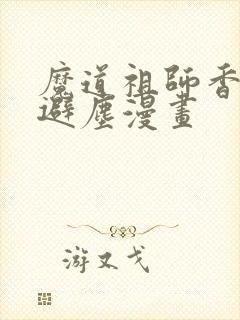 魔道祖師香
避塵漫畫
游又戈